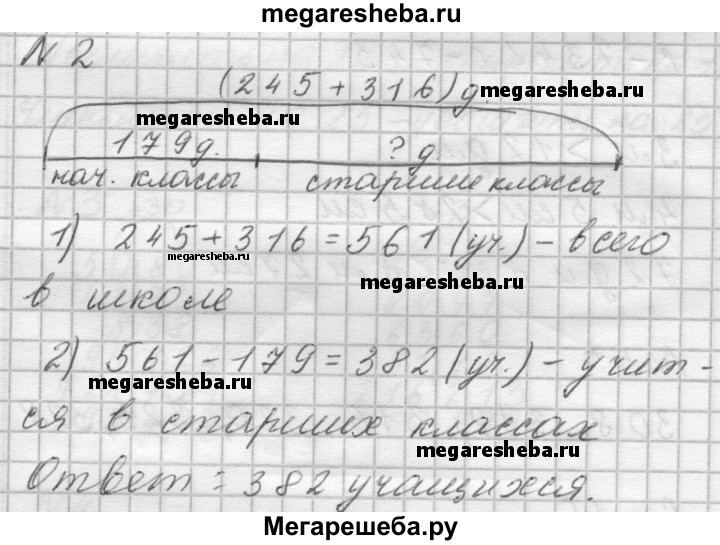 megaresheba.ru
N 2
(245+316)д. megaresheba.ru
megaresheba.ru
179д. ? д.
нач. классы старшие классы
1) 245+316=561(уч.) - всего
megaresheba.ru megaresheba.ru
в школе
2) 561-179=382(уч.) - учит-
megaresheba.ru
ся в старших классах
megaresheba.ru
Ответ: 382 учащихся.
Мегарешеба.ру